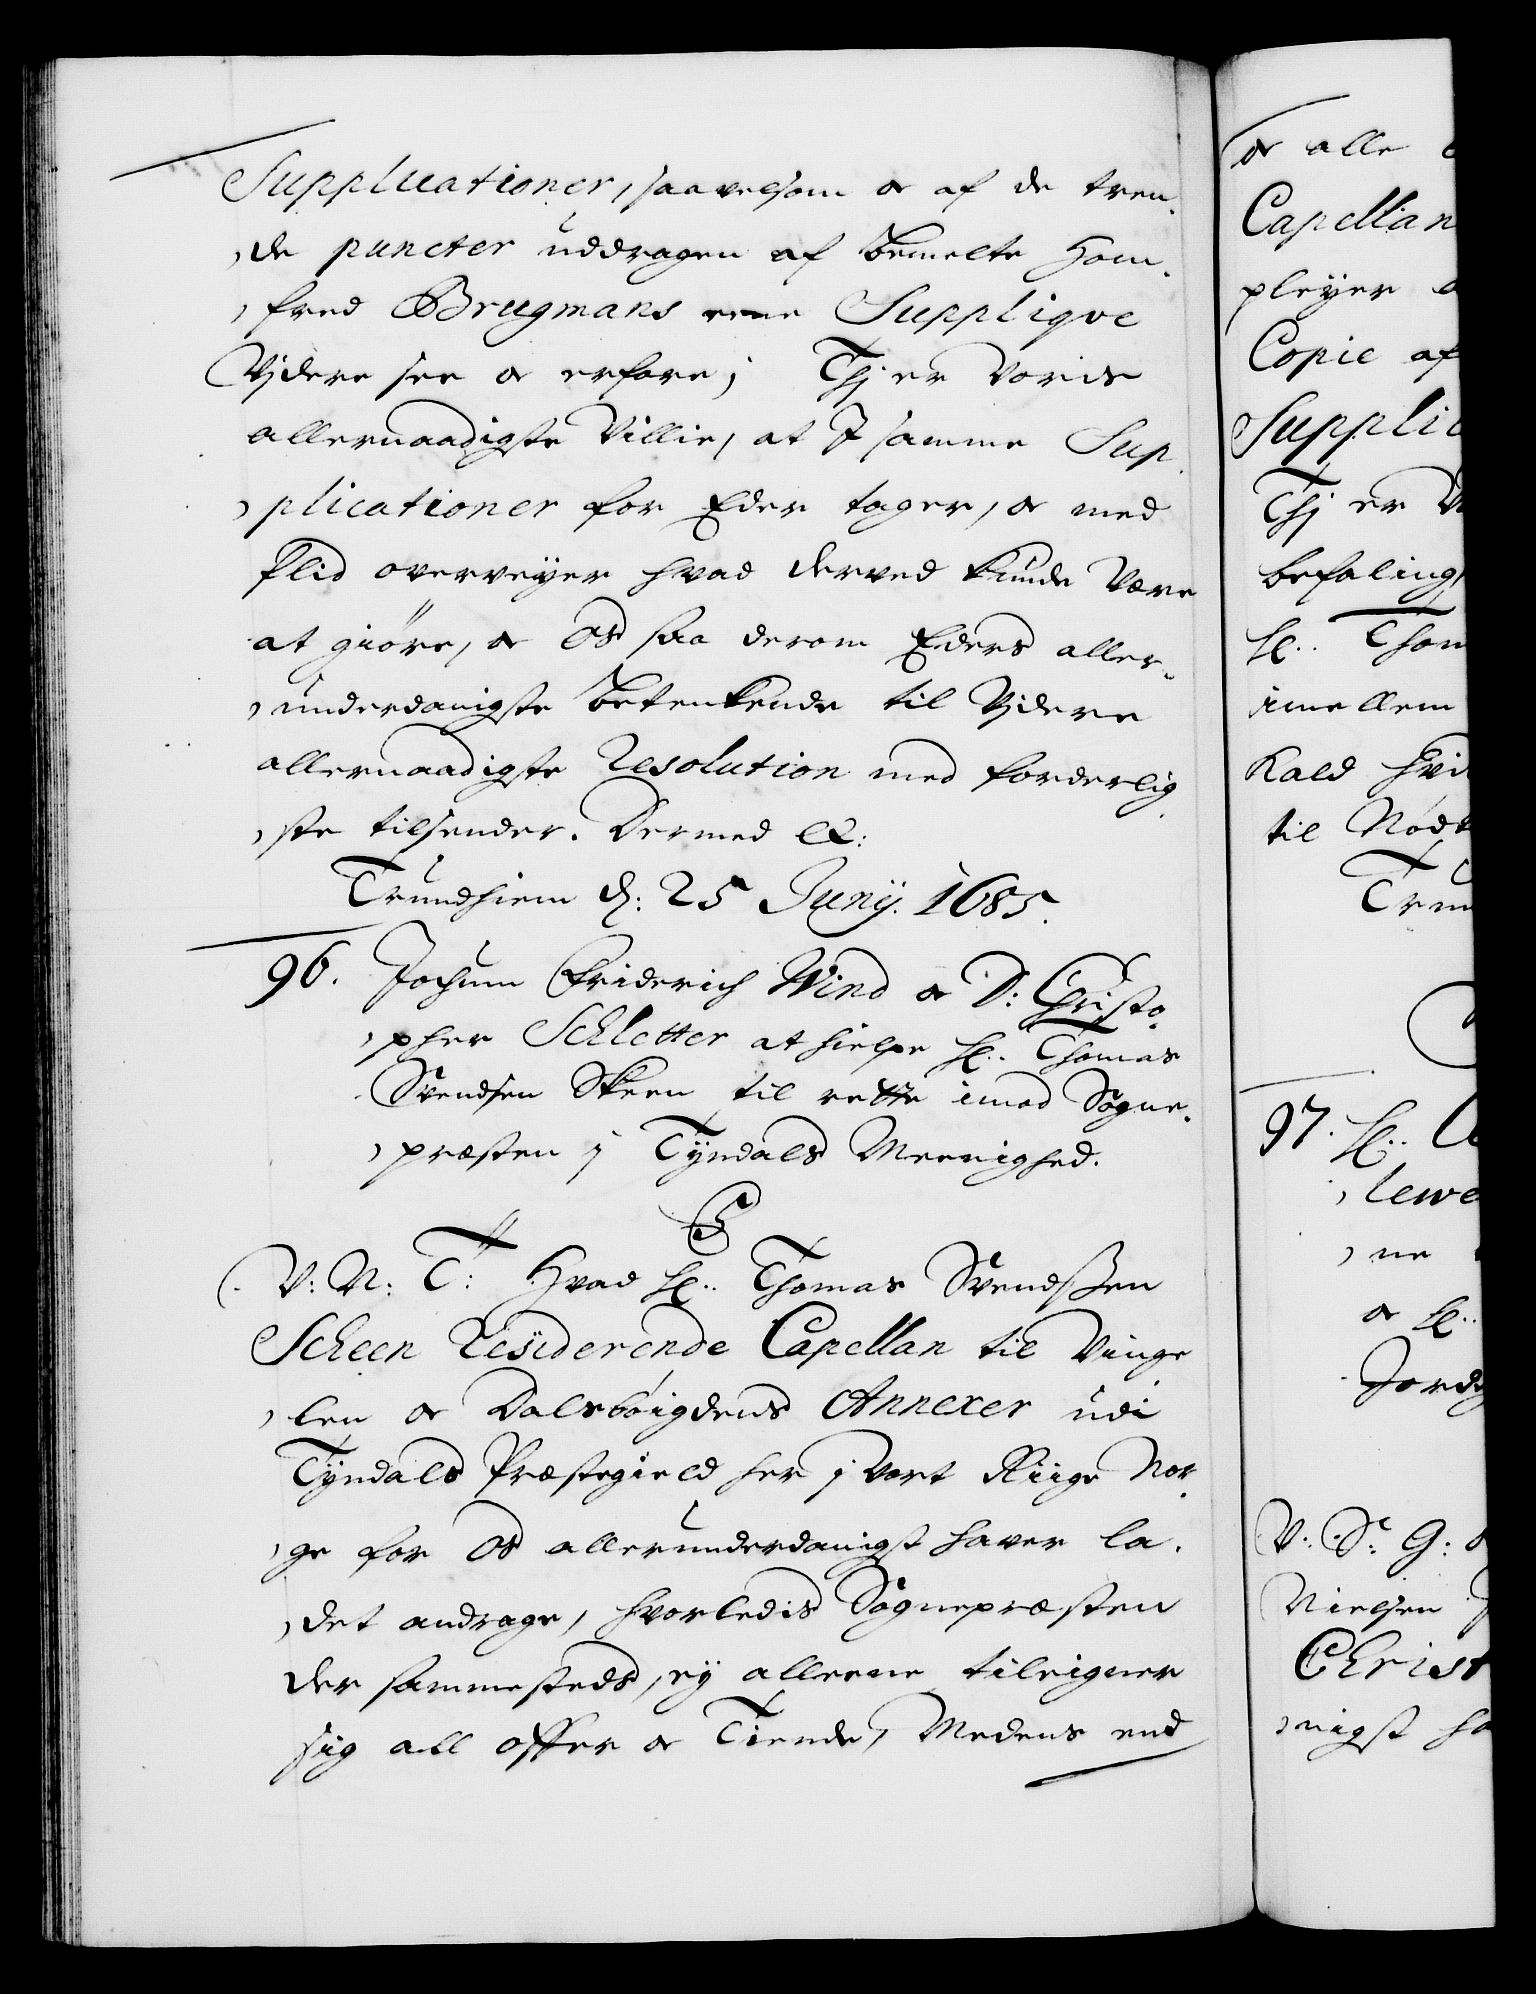 Supplicationer, saavelsom og af de tren-
,de puncter uddragen af bemelte Hom-
,fred Brugmans eene Supplique
Vjdere see og erfare; Thj er Voris
allernaadigste Villie, at I samme Sup-
,plicationer for Eder tager, og med
Flid overveyer hvad derved kunde Være
at giöre, og Os saa derom Eders aller-
,underdanigste betenkende til Vjdere
allernaadigste Resolution med forderlig-
,ste tilsender. Dermed &c:
Trundhiem d: 25 Junij. 1685.
96. Jochum Friderich Wind og D: Christo-
,pher Schletter at hielpe Hr. Thomas
Svendsen Skeen til rette imod Sogne-
,præsten j Tyndals Meenighed.
C5
V: N: T: Hvad Hr. Thomas Svendszen
Scheen Residerende Capellan til Vinge
,len og Dalsböigdens Annexer udi
Tyndals Præstegield her j Vort Riige Nor-
,ge for Os allerunderdanigst haver la-
,det andrage, hvorledis Sognepræsten
der sammesteds, ey alleene tileigner
sig all offer og Tiende, Medens end
og alle
Capellan
pleyer
Copie af
Supplic
Thj er V
befaling,
Hr. Thom
imellem
Kald hvi
til Nödt
Trun
97. Hr.
,lewe
,ne
og Hr.
Jord
V: S: G:
Nielsen
Christ
,nigst ha